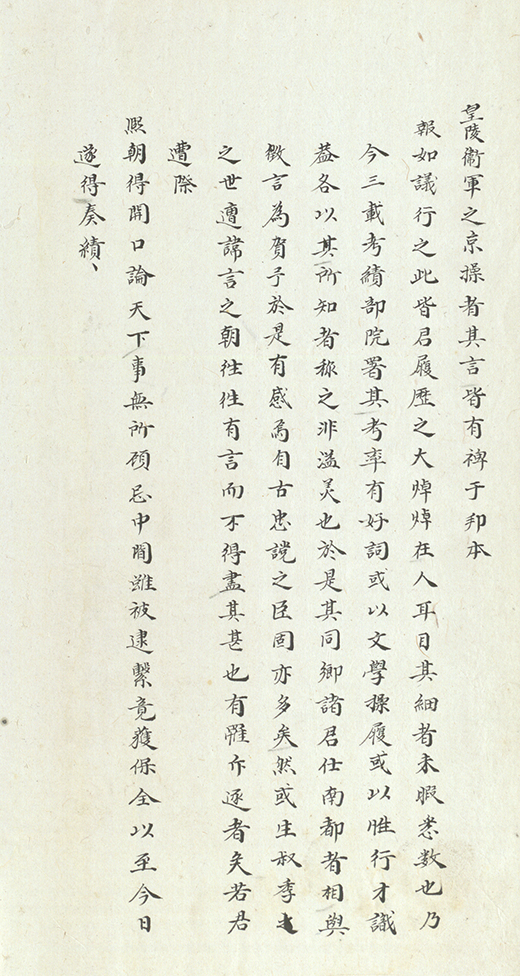 皇陵衞軍之京操者其言皆有裨于邦本
報如議行之此皆君履歷之大焯焯在人耳目其細者未暇悉數也乃
今三載考績部院署其考率有好詞或以文學操履或以性行才識
葢各以其所知者稱之非溢美也於是其同鄉諸君仕南都者相與
徵言為賀予於是有感焉自古忠讜之臣固亦多矣然或生叔季之
之世遭諱言之朝往往有言而不得盡其甚也有罹斥逐者矣若君
遭際
熙朝得開口論天下事無所顧忌中間雖被逮繫竟獲保全以至今日
遂得奏績、